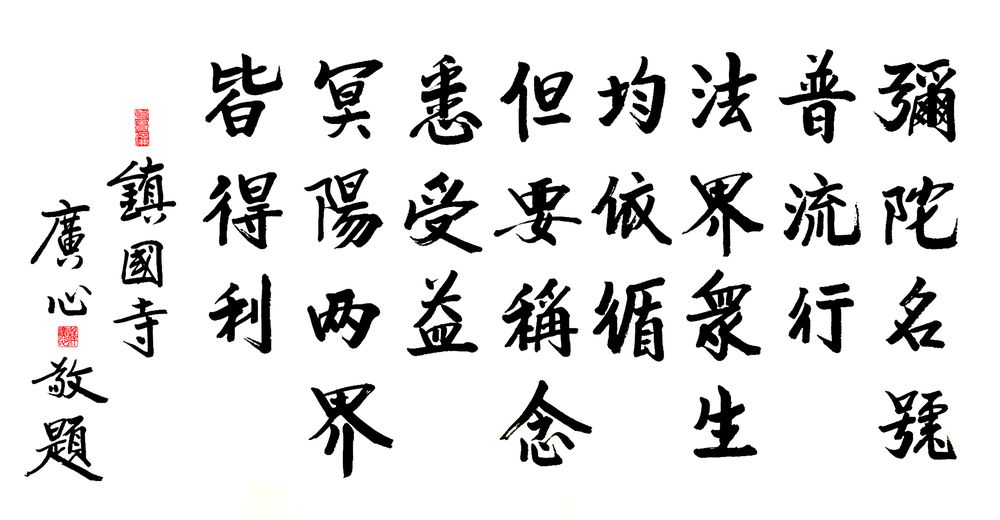 彌陀名號
普流行
法界眾生
均依循
但要稱念
悉受益
冥陽两界
皆得利
鎮國寺
廣心敬題